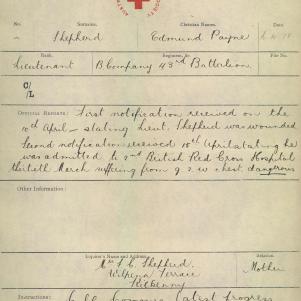 No.
Surname.
Christian Names.
Date
Shepherd
Edmund Payne
Rank.
Regiment, &c
File No.
Lieutenant
B Company 43rd Battalion
C/L
OFFICIAL REPORTS: First notification received on the
10th April - stating Lieut. Shepherd was wounded
Second notification received 15th April stating he
was admitted to 2nd British Red Cross Hospital
thirtieth March suffering from g.s.w chest dangerous
Other Information:
Inquirer's Name and Address
Relation
Mrs Shepherd.
Wilpena Terrace
Kilkenny
Mother
Instructions: latest progress